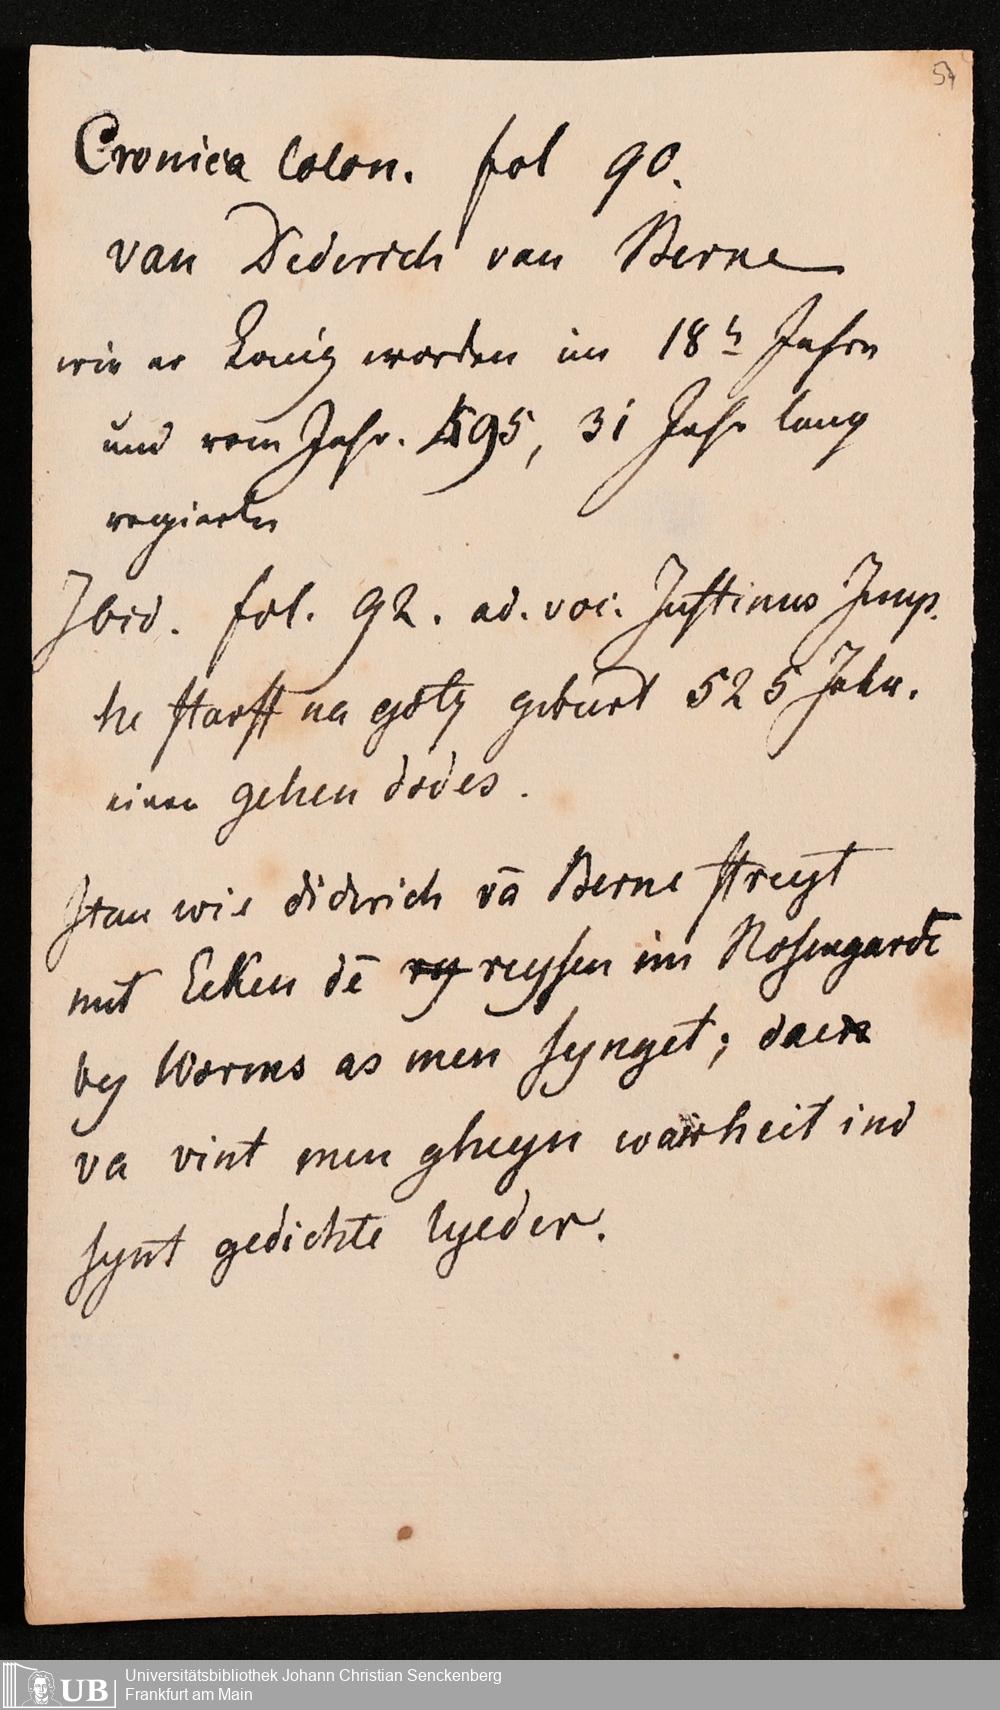 54
Cronica Colon. fol 90.
van Dederich van Berne
wie er Konig worden im 18n Jahre
und vom Jahr. 595, 31 Jahr lang
regierte
Ibid. fol. 92. ad. voc. Justinus Imp.
he starff na gotz geburt 525 Jahr.
einen gehen dodes.
Item wie diderich vā Berne streyt
mit Ecken dē reyssen im Rosengardē
by Worms as men synget; daer
va vint men gheyn warheit ind
synt gedichte lyeder.
UB Universitätsbibliothek Johann Christian Senckenberg
Frankfurt am Main